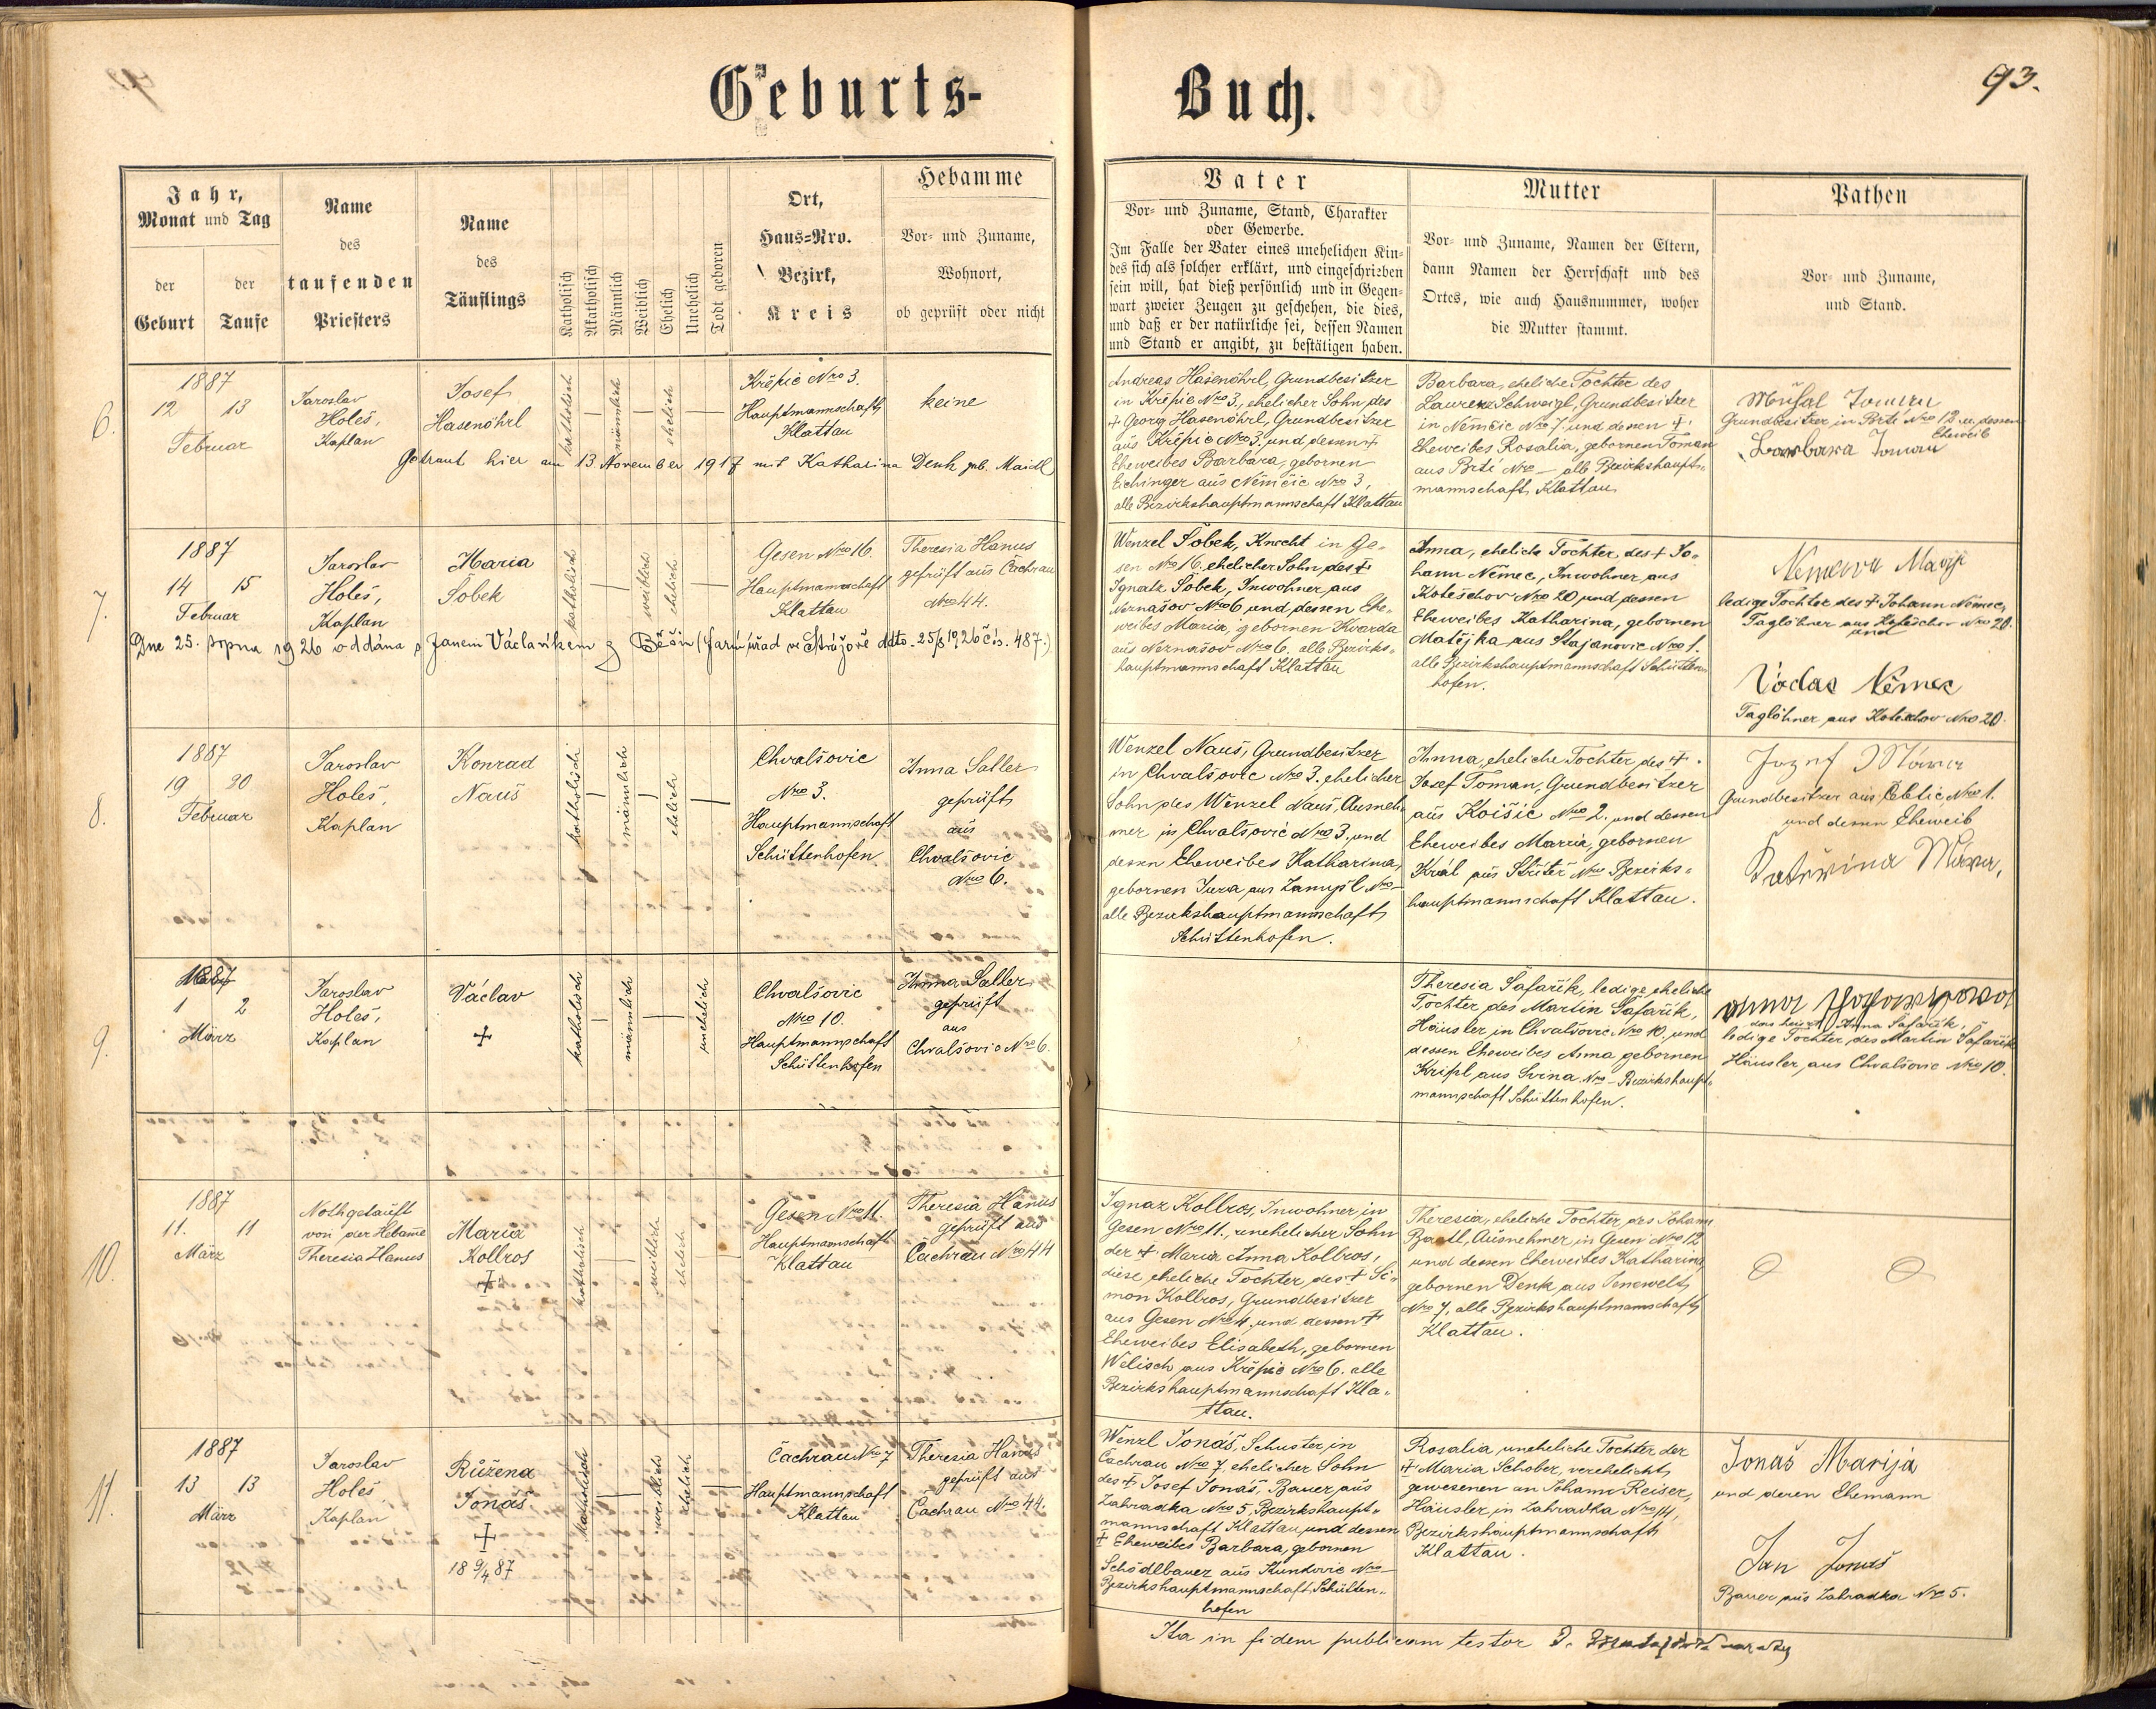 Geburts-
Buch.
93.
Jahr,
Monat und Tag
der Geburt
der Taufe
Name
des
taufenden
Priesters
Name
des
Täuflings
Katholisch
Akatholisch
Männlich
Weiblich
Ehelich
Unehelich
Todt geboren
Ort,
Haus=Nro.
Bezirk,
Kreis
Hebamme
Vor- und Zuname,
Wohnort,
ob geprüft oder nicht
Vater
Vor- und Zuname, Stand, Charakter
oder Gewerbe.
Im Falle der Vater eines unehelichen Kin=
des sich als solcher erklärt, und eingeschrieben
sein will, hat dieß persönlich und in Gegen=
wart zweier Zeugen zu geschehen, die dies,
und daß er der natürliche sei, dessen Namen
und Stand er angibt, zu bestätigen haben.
Mutter
Vor- und Zuname, Namen der Eltern,
dann Namen der Herrschaft und des
Ortes, wie auch Hausnummer, woher
die Mutter stammt.
Pathen
Vor- und Zuname,
und Stand.
6.
1887
12 13
Februar
Jaroslav
Holeš,
Kaplan
Josef
Hasenöhrl
katholisch
männlich
ehelich
Křepic Nro 3.
Hauptmannschaft
Klattau
keine
Getraut hier am 13 November 1917 mit Katharina Denk geb. Maidl
Andreas Hasenöhrl, Grundbesitzer
in Křepic Nro 3, ehelicher Sohn des
+ Georg Hasenöhrl, Grundbesitzer
aus Křepic Nro 3, und dessen +
Eheweibes Barbara, gebornen
Eichinger aus Němčic Nro 3,
alle Bezirkshauptmannschaft Klattau
Barbara, eheliche Tochter des
Laurenz Schweigl, Grundbesitzer
in Němčic Nro 7, und dessen +
Eheweibes Rosalia, gebornen Toman
aus Brti Nro — alle Bezirkshaupt=
mannschaft Klattau
Toman
Grundbesitzer in Brti Nro 12 u. dessen
Eheweib
Barbara Toman
7.
1887
14 15
Februar
Jaroslav
Holeš,
Kaplan
Maria
Šobek
katholisch
weiblich
ehelich
Gesen Nro 16.
Hauptmannschaft
Klattau
Theresia Hanus
geprüft aus Čachrau
Nro 44.
Dne 25. srpna 1926 oddána s Janem Václavíkem z Běšin (farní úřad ve Strážově ddto. 25/8 1926 čís. 487.)
Wenzel Šobek, Knecht in Ge=
sen Nro 16, ehelicher Sohn des +
Ignatz Šobek, Inwohner aus
Neznašov Nro 6 und dessen Ehe=
weibes Maria, gebornen Kvarda
aus Neznašov Nro 6. alle Bezirks=
hauptmannschaft Klattau
Anna, eheliche Tochter des + Jo=
hann Němec, Inwohner aus
Kotešchov Nro 20 und dessen
Eheweibes Katharina, gebornen
Matějka aus Stajanovic Nro 1.
alle Bezirkshauptmannschaft Schütten=
hofen.
ledige Tochter des + Johann Němec,
Taglöhner aus Kotešchov Nro 20.
und
Václav Němec
Taglöhner aus Kotešchov Nro 20.
8.
1887
19 20
Februar
Jaroslav
Holeš,
Kaplan
Konrad
Nauš
katholisch
männlich
ehelich
Chvalšovic
Nro 3.
Hauptmannschaft
Schüttenhofen
Anna Saller
geprüft
aus
Chvalšovic
Nro 6.
Wenzel Nauš, Grundbesitzer
in Chvalšovic Nro 3. ehelicher
Sohn des Wenzel Nauš, Ausneh=
mer in Chvalšovic Nro 3. und
dessen Eheweibes Katharina,
gebornen Jura aus Zamyšl Nro —
alle Bezirkshauptmannschaft
Schüttenhofen.
Anna, eheliche Tochter des +
Josef Toman, Grundbesitzer
aus Koišic Nro 2. und dessen
Eheweibes Maria, gebornen
Král aus Střítěř Nro Bezirks=
hauptmannschaft Klattau.
Grundbesitzer aus Nro 1.
und dessen Eheweib
9.
1887
1 2
März
Jaroslav
Holeš,
Kaplan
Václav
+
katholisch
männlich
unehelich
Chvalšovic
Nro 10.
Hauptmannschaft
Schüttenhofen
Anna Saller
geprüft
aus
Chvalšovic Nro 6.
Theresia Šafařik, ledige eheliche
Tochter des Martin Šafařik,
Häusler in Chvalšovic Nro 10. und
dessen Eheweibes Anna gebornen
Kripl aus Svina Nro — Bezirkshaupt=
mannschaft Schüttenhofen.
das heisst Anna Šafařik,
ledige Tochter des Martin Šafařik
Häusler, aus Chvalšovic Nro 10.
10.
1887
11. 11
März
Nothgetauft
von der Hebame
Theresia Hanus
Maria
Kollros
+
katholisch
weiblich
ehelich
Gesen Nro 11.
Hauptmannschaft
Klattau
Theresia Hanus
geprüft aus
Čachrau Nro 44
Ignaz Kollros, Inwohner in
Gesen Nro 11., unehelicher Sohn
der + Maria Anna Kollros,
diese eheliche Tochter des + Si=
mon Kollros, Grundbesitzer
aus Gesen Nro 4. und dessen +
Eheweibes Elisabeth, gebornen
Welisch aus Křepic Nro 6. alle
Bezirkshauptmannschaft Kla=
ttau.
Theresia, eheliche Tochter des Johann
Bartl, Ausnehmer in Gesen Nro 12
und dessen Eheweibes Katharina
gebornen Denk aus Jenewelt
Nro 7, alle Bezirkshauptmannschaft
Klattau.
11.
1887
13 13
März
Jaroslav
Holeš
Kaplan
Růžena
Jonáš
+
18 9/4 87
katholisch
weiblich
ehelich
Čachrau Nro 7
Hauptmannschaft
Klattau
Theresia Hanus
geprüft aus
Čachrau Nro 44.
Wenzl Jonáš, Schuster in
Čachrau Nro 7, ehelicher Sohn
des + Josef Jonáš, Bauer aus
Zahradka Nro 5, Bezirkshaupt=
mannschaft Klattau, und dessen
+ Eheweibes Barbara, gebornen
Schödlbauer aus Kundovic Nro —
Bezirkshauptmannschaft Schütten=
hofen
Rosalia, uneheliche Tochter der
+ Maria Schober, verehelicht
gewesenen an Johann Reiser,
Häusler in Zahradka Nro 14,
Bezirkshauptmannschaft
Klattau.
Jonáš Marija
und deren Ehemann
Jan Jonáš
Bauer aus Zahradka Nro 5.
Ita in fidem publicam testor